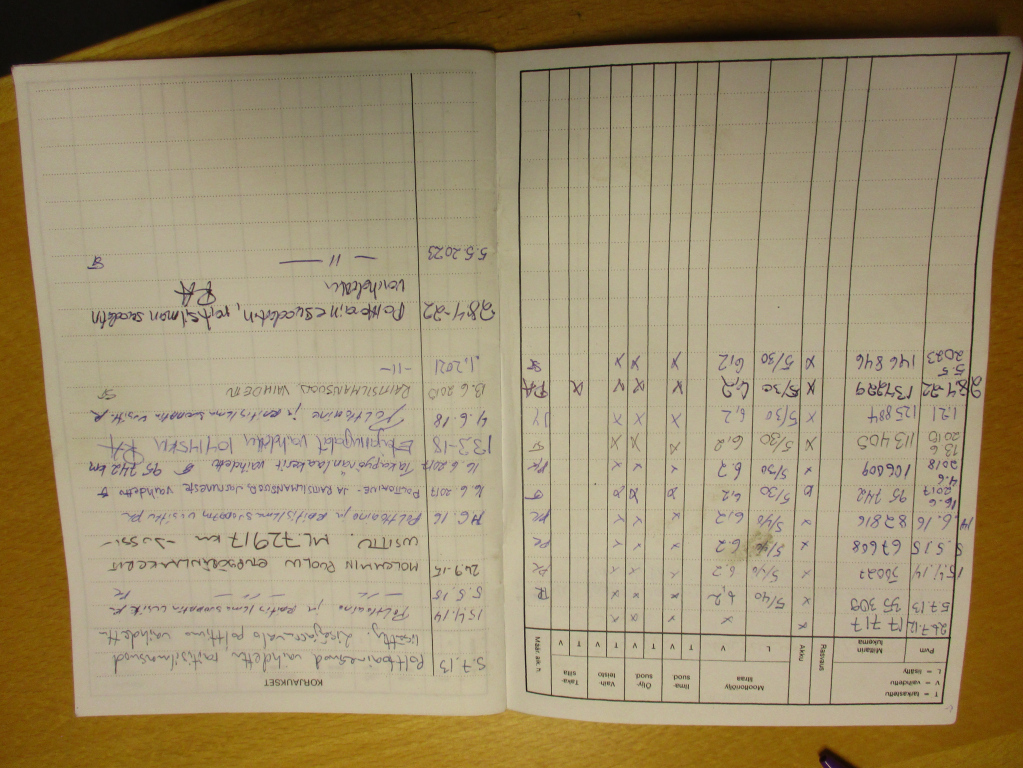 T = tarkastettu
V = vaihdettu
L = lisätty
Pvm Mittarin lukema Rasvaus Akku Moottoriöljy litraa Ilma- suod. Öljy- suod. Vaih- teisto Taka- silta Määr. aik. h
L V T V T V T V T V
26.7.12 17 717 x x x x
5.7.13 35 309 x 5/40 6,2 x x x
15.4.14 50027 x 5/40 6,2 x x x PK
5.5.15 67668 x 5/40 6.2 x x x PK
14.6.16 82816 x 5/40 6,2 x x x PK
16.6 2017 95 742 5/30 6,2
4.6 2018 106809 x 5/30 6.2 x x x PK
13.6 2010 113405 x 5/30 6.2 x x x
1.1.21 125884 x 5/30 6,2 x x x
28.4-22 137279 x 5/30 6,2 x x x x PA
5.5 2023 146 846 x 5/30 6,2 x x x
KORJAUKSET
5.7.13 Polttoainesuod vaihdettu raitisilmansuod
15.4.14 Polttoaine ja raitisilma
5.5.15 — 11 — — 11 — PK
24.9-15 MOLEMMIN PUOLIN ETUPYÖRÄNLAAKERIT
UUSITTU. ML 72917 km -JUSSI-
14.6.16 Polttoaine ja raitisilma suodatin uusittu PK
16.6.2017 POLTTOAINE- JA RAITISILMANSUOD, JARRUNESTE VAIHDETTU
16.6.2017 Takapyörän laakerit vaihdettu 95 742 km
13.3-18 Etujarrupalat vaihdettu PA
4.6.18 Polttoaine ja raitisilma suodatin uusit. PK
13.6 2010 RAITISILMANSUOD. VAIHDETTU
1.1.2021 -11-
28.4-22 Polttoainesuodatin, raitisilman suodatin
vaihdettu PA
5.5.2023 — 11 —